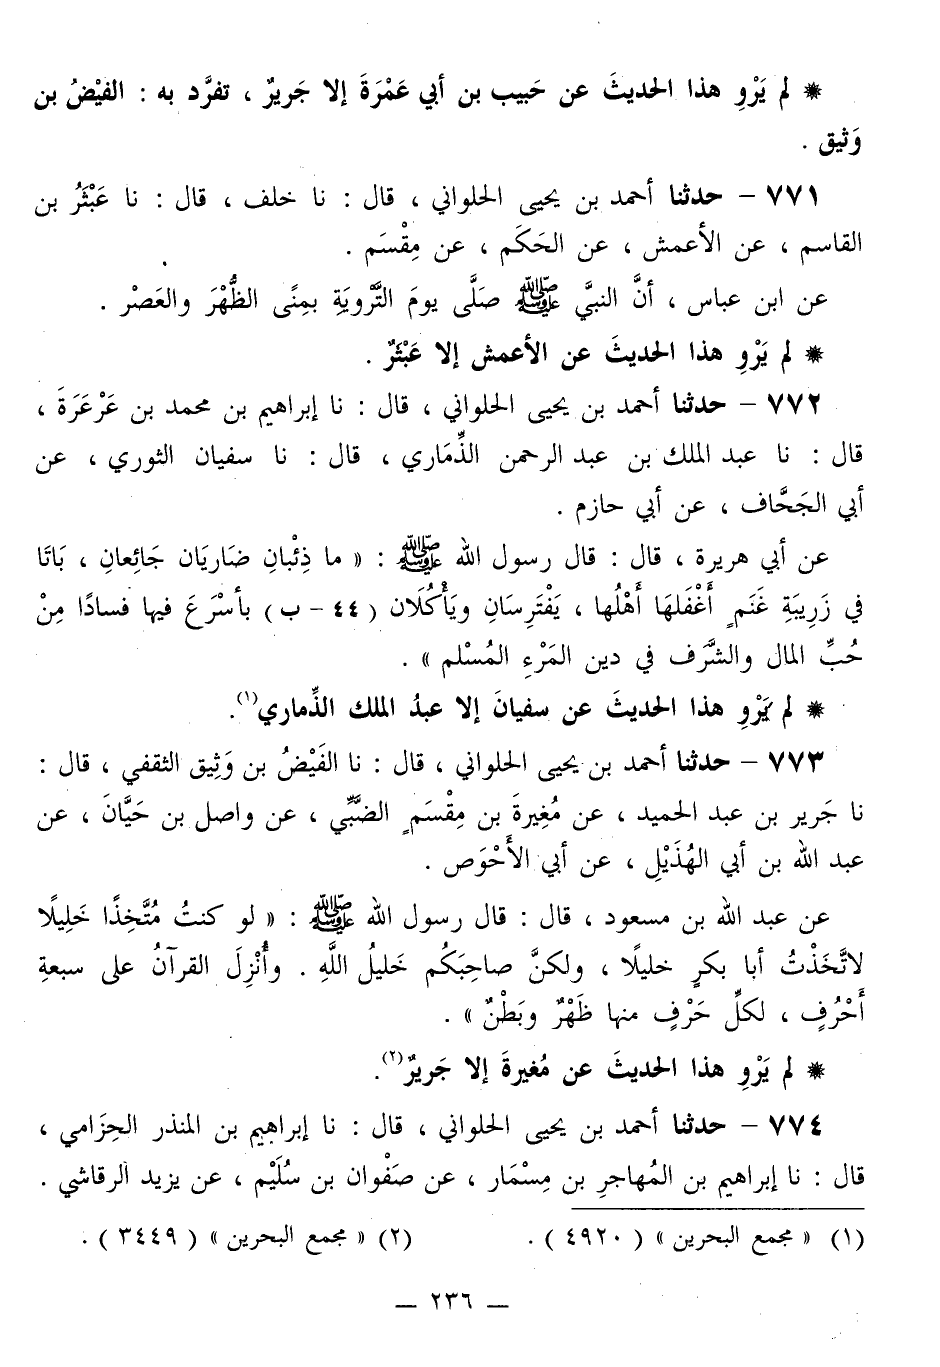 * لم يَرْوِ هذا الحديثَ عن حَبيب بن أبي عَمْرَةَ إلا جَريرٌ ، تفرَّد به : الفيْضُ بن
وَثيق .
٧٧١ - حدثنا أحمد بن يحيى الحلواني ، قال : نا خلف ، قال : نا عَبْثَرُ بن
القاسم ، عن الأعمش ، عن الحَكَم ، عن مِقْسَم .
عن ابن عباس ، أنَّ النبيَّ ﷺ صَلَّى يومَ التَّرْويَةِ بمِنًى الظُّهْرَ والعَصْر .
* لم يَرْوِ هذا الحديثَ عن الأعمش إلا عَبْثَرٌ .
٧٧٢ - حدثنا أحمد بن يحيى الحلواني ، قال : نا إبراهيم بن محمد بن عَرْعَرَةَ ،
قال : نا عبد الملك بن عبد الرحمن الذِّمَاري ، قال : نا سفيان الثوري ، عن
أبي الجَحَّاف ، عن أبي حازم .
عن أبي هريرة ، قال : قال رسول الله ﷺ : « ما ذِئْبانِ ضَاريَان جَائِعانِ ، بَاتَا
في زَرِيبَةِ غَنَمٍ أَغْفَلهَا أَهْلُها ، يَفْتَرِسَانِ ويَأْكُلَان ( ٤٤ - ب ) بأسْرَعَ فيها فسادًا مِنْ
حُبِّ المال والشَّرَف في دين المَرْءِ المُسْلم » .
* لم يَرْوِ هذا الحديثَ عن سفيانَ إلا عبدُ الملك الذِّماري(١).
٧٧٣ - حدثنا أحمد بن يحيى الحلواني ، قال : نا الفَيْضُ بن وَثِيق الثقفي ، قال :
نا جَرير بن عبد الحميد ، عن مُغِيرةَ بن مِقْسَمٍ الضَّبِّي ، عن واصل بن حَيَّانَ ، عن
عبد الله بن أبي الهُذَيْلِ ، عن أبي الأَحْوَص .
عن عبد الله بن مسعود ، قال : قال رسول الله ﷺ : « لو كنتُ مُتَّخِذًا خَلِيلًا
لاتَّخَذْتُ أبا بكرٍ خليلًا ، ولكنَّ صاحِبَكُم خَليلُ اللَّهِ . وأُنْزِلَ القرآنُ على سبعةِ
أَحْرُفٍ ، لكلِّ حَرْفٍ منها ظَهْرٌ وبَطْنٌ » .
* لم يَرْوِ هذا الحديثَ عن مُغيرةَ إلا جَريرٌ(٢).
٧٧٤ - حدثنا أحمد بن يحيى الحلواني ، قال : نا إبراهيم بن المنذر الحِزَامي ،
قال : نا إبراهيم بن المُهاجرِ بن مِسْمَار ، عن صَفْوان بن سُلَيْم ، عن يزيد الرقاشي .
(١) « مجمع البحرين » ( ٤٩٢٠ ) .
(٢) « مجمع البحرين » ( ٣٤٤٩ ) .
— ٢٣٦ —